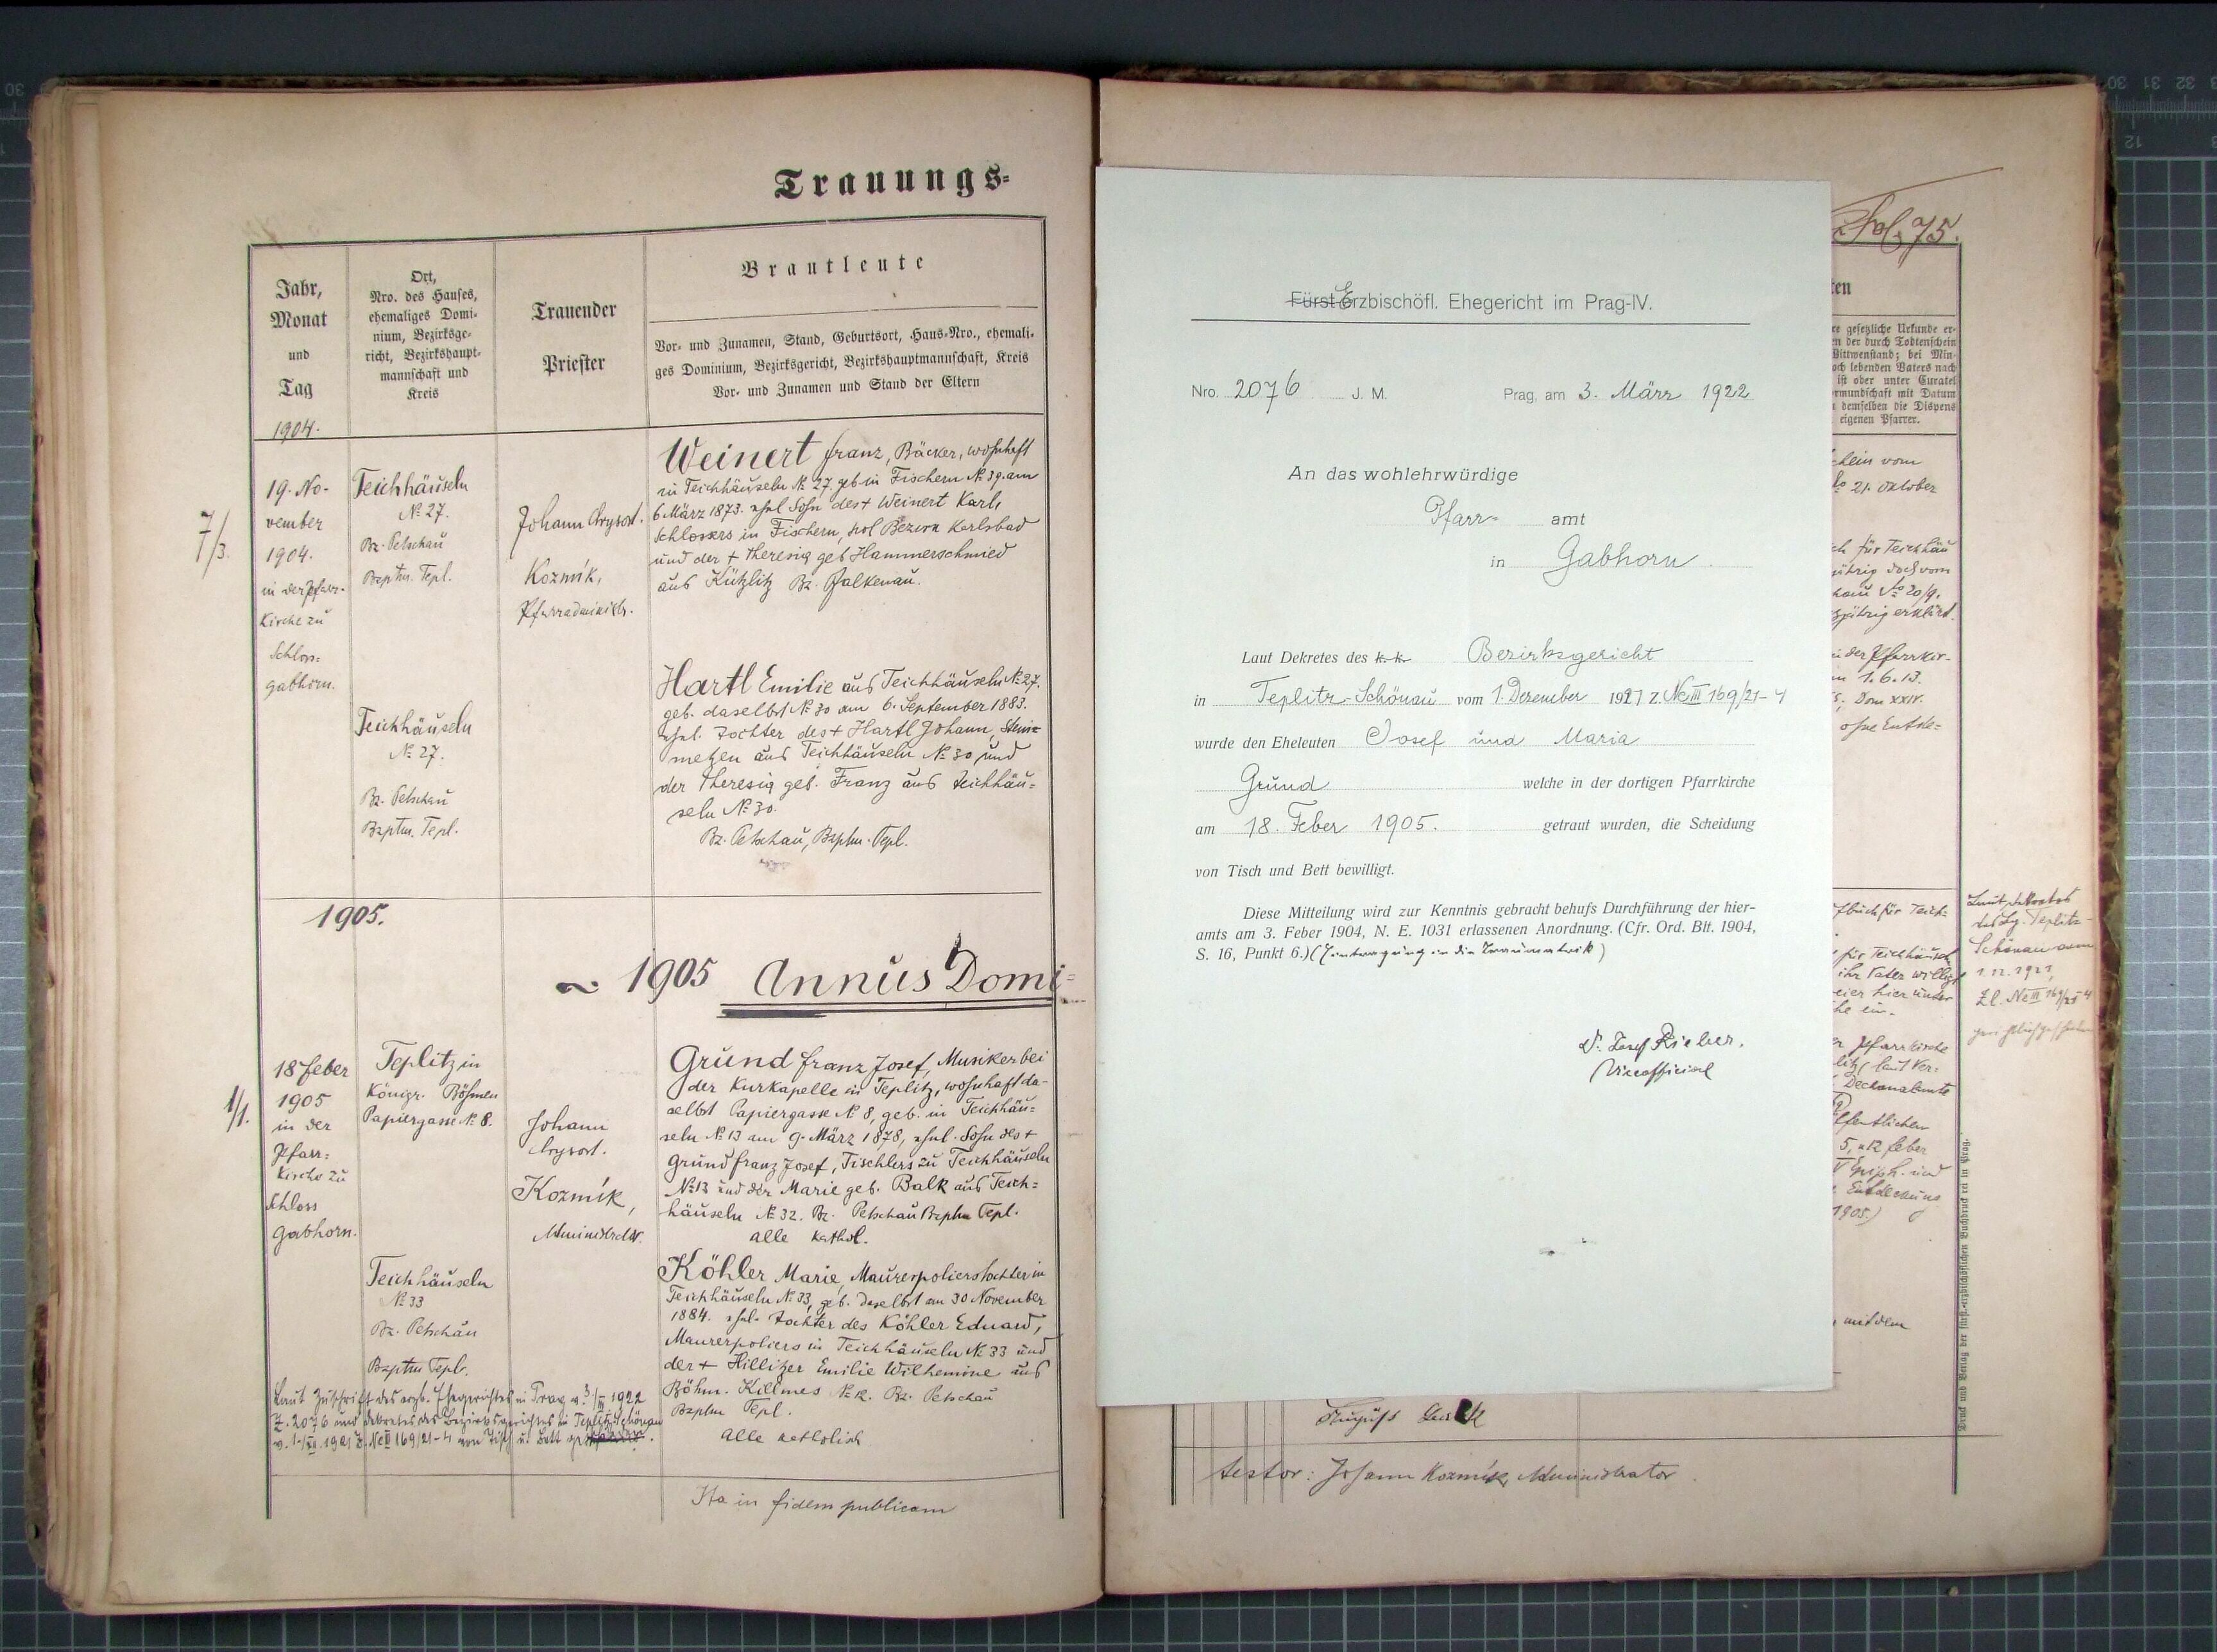 Trauungs-
Brautleute
Jahr,
Monat
und
Tag
1904.
Ort,
Nro. des Hauses,
ehemaliges Domi-
nium, Bezirksge-
richt, Bezirkshaupt-
mannschaft und
Kreis
Trauender
Priester
Vor- und Zunamen, Stand, Geburtsort, Haus-Nro., ehemali-
ges Dominium, Bezirksgericht, Bezirkshauptmannschaft, Kreis
Vor- und Zunamen und Stand der Eltern
7/3.
19. No-
vember
1904.
in der Pfarr-
Kirche zu
Schloss-
gabhorn.
Teichhäuseln
№ 27.
Bz. Petschau
Bzptm. Tepl.
Johann Chrysost.
Kozmík,
Pfarradministr.
Weinert Franz, Bäcker, wohnhaft
in Teichhäuseln № 27. geb in Fischern № 39. am
6 März 1873. ehel Sohn des + Weinert Karl,
Schlossers in Fischern, pol Bezirk Karlsbad
und der + Theresia geb Hammerschmied
aus Kützlitz Bz. Falkenau.
Teichhäuseln
№ 27.
Bz. Petschau
Bzptm. Tepl.
Hartl Emilie aus Teichhäuseln № 27.
geb. daselbst № 30 am 6. September 1883.
ehel. Tochter des + Hartl Johann, Stein-
metzen aus Teichhäuseln № 30 und
der Theresia geb. Franz aus Teichhäu-
seln № 30.
Bz. Petschau, Bzptm. Tepl.
1905.
1905 Annus Domi-
1/1.
18 Feber
1905
in der
Pfarr-
Kirche zu
Schloss
Gabhorn.
Teplitz in
Königr. Böhmen
Papiergasse № 8.
Johann
Chrysost.
Kozmík,
Administrator.
Grund Franz Josef, Musiker bei
der Kurkapelle in Teplitz, wohnhaft da-
selbst Papiergasse № 8, geb. in Teichhäu-
seln № 13 am 9. März 1878, ehel. Sohn des +
Grund Franz Josef, Tischlers zu Teichhäuseln
№ 13 und der Marie geb. Balk aus Teich-
häuseln № 32. Bz. Petschau Bzptm Tepl.
alle kathol.
Teichhäuseln
№ 33
Bz. Petschau
Bzptm Tepl.
Köhler Marie, Maurerpolierstochter in
Teichhäuseln № 33, geb. daselbst am 30 November
1884. ehel. Tochter des Köhler Eduard,
Maurerpoliers in Teichhäuseln № 33 und
der + Hillitzer Emilie Wilhemine aus
Böhm. Killmes № 12. Bz. Petschau
Bzptm Tepl.
alle katholisch
Laut Zuschrift des erzb. Ehegerichtes in Prag v. 3./III 1922
Z. 2076 und Dekretes des Bezirksgerichtes in Teplitz-Schönau
Z. Ne III 169/21-4 von Tisch u. Bett
Ita in fidem publicam
Fürst-Erzbischöfl. Ehegericht im Prag-IV.
Nro. 2076 J. M. Prag, am 3. März 1922
An das wohlehrwürdige
Pfarr- amt
in Gabhorn.
Laut Dekretes des k. k. Bezirksgericht
in Teplitz-Schönau vom 1. Dezember 1921 Z. Ne III 169/21-4
wurde den Eheleuten Josef und Maria
Grund welche in der dortigen Pfarrkirche
am 18. Feber 1905. getraut wurden, die Scheidung
von Tisch und Bett bewilligt.
Diese Mitteilung wird zur Kenntnis gebracht behufs Durchführung der hier-
amts am 3. Feber 1904, N. E. 1031 erlassenen Anordnung. (Cfr. Ord. Blt. 1904,
S. 16, Punkt 6.) (Eintragung in die Traumatrik)
Dr. Josef Rieber,
Viceofficial
Fol. 75.
ten
re gesetzliche Urkunde er-
en der durch Todtenschein
Wittwenstand; bei Min-
och lebenden Vaters nach
ist oder unter Curatel
rmundschaft mit Datum
demselben die Dispens
eigenen Pfarrer.
schein vom
21. Oktober
ch für Teichhäu
jährig doch vom
№ 20/9.
jährig erklärt.
in der Pfarrkir-
6. 13.
Dom XXIV.
ohne Entde-
fbuch für Teich-
für Teichhäuseln
ihr Vater willigt
hier unter
he ein.
Pfarrkirche
litz laut Ver-
Decanalamte
ffentlichen
5, u 12 Feber
V Epiph. und
Entdeckung
1905)
mit dem
Laut Dekretes
des Bg. Teplitz-
Schönau vom
1.12.1921,
Zl. Ne III 169/21-4
Druck und Verlag der fürst.-erzbischöflichen Buchdruckerei in Prag.
testor: Johann Kozmík, Administrator.